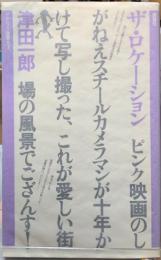 ザ・ロケーション ピンク映画のし
がねえスチールカメラマンが十年か
けて写し撮った、これが愛しい街
津田一郎 場の風景でござんす!